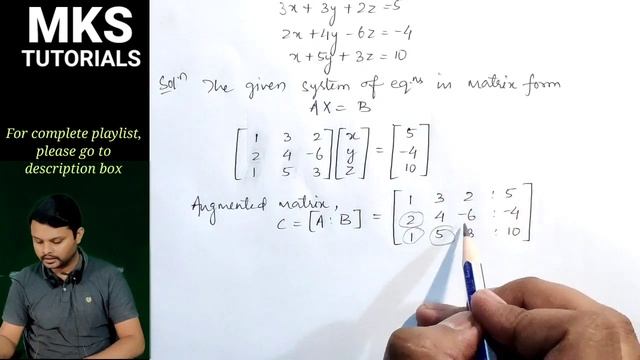 MKS
TUTORIALS
For complete playlist,
please go to
description box
3x + 3y + 2z = 5
2x + 4y - 6z = -4
x + 5y + 3z = 10
Solⁿ The given system of eq.ns in matrix form
AX = B
[1 3 2] [x] = [5]
[2 4 -6] [y] [-4]
[1 5 3] [z] [10]
Augmented matrix,
C = [A : B] = [1 3 2 : 5]
[2 4 -6 : -4]
[1 5 3 : 10]